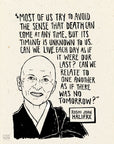 "MOST OF US TRY TO AVOID
THE SENSE THAT DEATH CAN
COME AT ANY TIME, BUT ITS
TIMING IS UNKNOWN TO US.
CAN WE LIVE EACH DAY AS IF
IT WERE OUR
LAST? CAN WE
RELATE TO
ONE ANOTHER
AS IF THERE
WAS NO
TOMORROW?"
ROSHI JOAN
HALIFAX